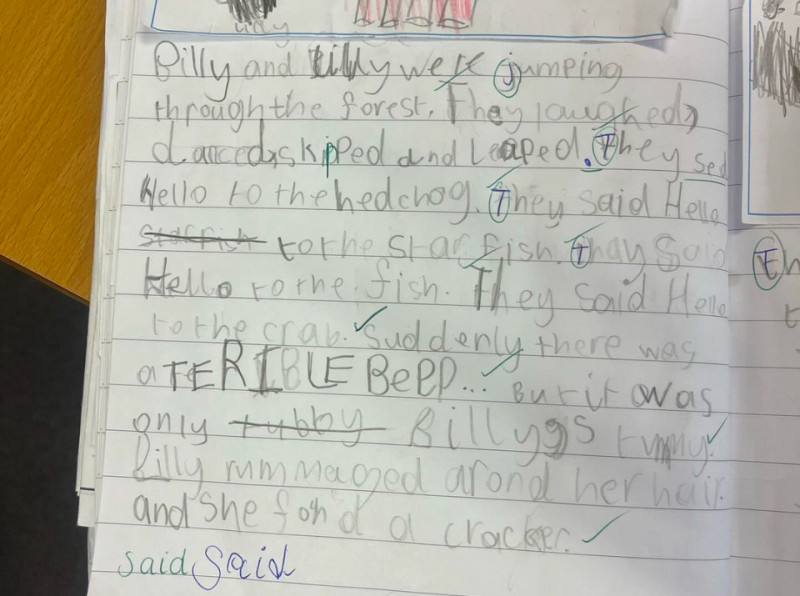 Billy and tilly were jumping
through the forest. They laughed,
danced, skipped and Leaped. They sed
Hello to the hedchog. They said Hello
starfish to the star fish. Thay Said
Hello to the fish. They said Hello
to the crab. Suddenly there was
a TERIBLE BeeP... But it was
only tubby Billys tumy.
Billy rummaged arond her hair.
and she fond a cracker.
said Said